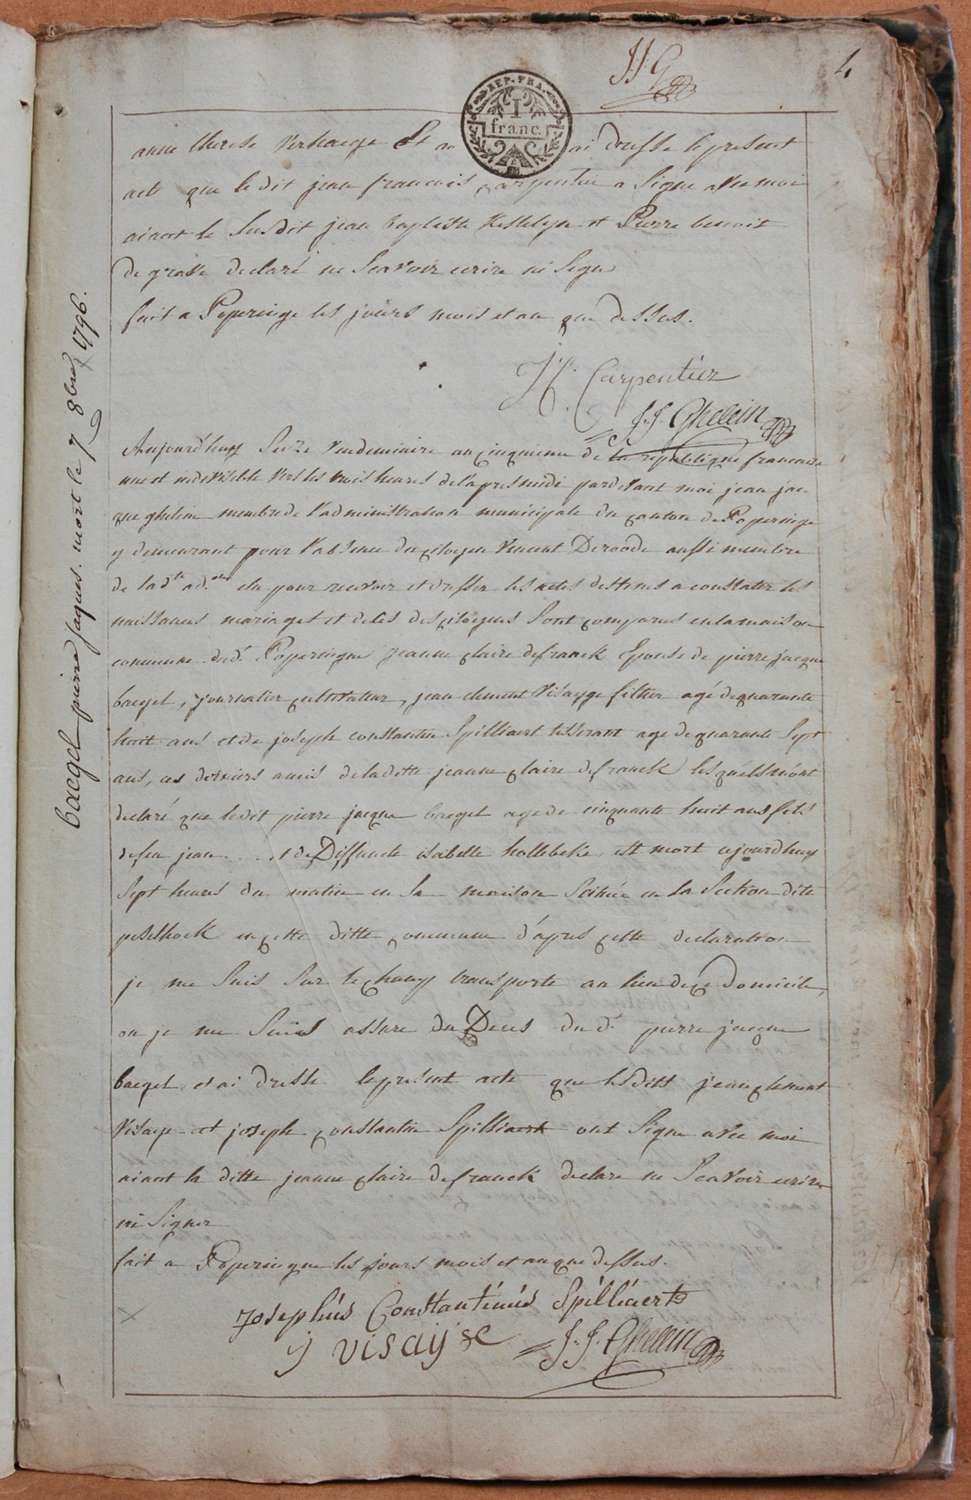 JJG
4
REP. FRA.
1
franc.
anne therese Verhaege Et ai dressé le present
acte que ledit jean francois Carpentier a Signé avec moi
aiant le Susdit jean baptiste et Pierre benoit
de grave declaré ne Scavoir ecrire ni Signe
fait a Poperinge les jours mois et an que dessus.
Carpentier
J. J. Ghelein
baegel pierre Jaques. mort le 7 8bre 1796.
Aujourd'huy Seize Vendemiaire an cinqueme de la republique francaise
une et indivisible vers les trois heures de l'apresmidi pardevant moi jean jac-
que ghelein membre de l'administration municipale du canton de Poperinge
y demeurant pour l'absence du citoyen Vincent Deroode aussi membre
de lad.te ad.on elu pour recevoir et dresser les actes destinés a constater les
naissances mariages et décès des citoyens Sont comparus en la maison
commune dud.t Poperingue jeanne claire defranck Epouse de pierre jacque
baegel, journalier cultivateur, jean clement Visayge filtier agé de quarante
huit ans et de joseph constantin Spilliaert tisserant age de quarante Sept
ans, ces derniers amis de ladette jeanne claire defranck lesquels m'ont
declaré que ledit pierre jacque baegel age de cinquante huit ans fils
defeu jean . . . et de Diffuncte isabelle hollebeke, est mort aujourdhuy
Sept heures du matin en Sa maison Scituée en la Section dite
peselhoek en cette ditte commune d'après cette declaration
je me Suis Sur le champ transporté au lieu de ce domicile,
ou je me Suis assuré du Deces du d.t pierre jacque
baegel et ai dressé le present acte que lesditt jean clement
Visaige et joseph constantin Spilliaert ont Signe avec moi
aiant la ditte jeanne claire defranck declare ne Scavoir ecrire
ni Signer
fait a Poperingue les jours mois et an que dessus.
Josephus Constantinus Spilliaert
j visayge
J. J. Ghelein